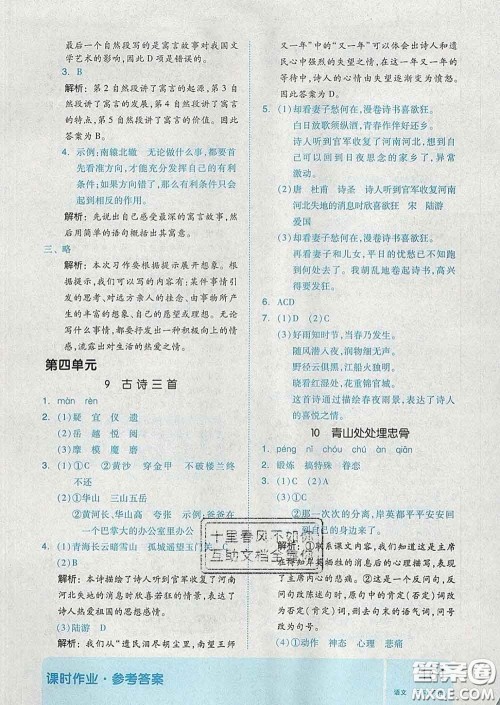 最后一个自然段写的是寓言故事对我国文
学艺术的影响，因此D项是错误的。
3. B
解析：第2自然段讲了寓言的起源，第3自
然段讲了寓言的发展，第4自然段讲了寓言
的特点，第5自然段讲了寓言的价值。因此
答案为B。
4. 示例：南辕北辙　无论做什么事，都要首
先看准方向，才能充分发挥自己的有利
条件；如果方向错了，那么有利条件只会起
到相反的作用。
解析：先说出自己感受最深的寓言故事，然
后用简单的语句概括出其寓意。
三、略
解析：本次习作要根据提示展开想象。根据
提示，我们可以写的内容有：某件事情引
发的思考、对远方亲人的挂念、由事物所产
生的丰富的想象、自己的愿望或理想。无论
写什么事情，都要抒发一种积极向上的情
感，流露出对生活的热爱之情。
第四单元
9　古诗三首
1. màn　rèn
2. (1)疑　宜　仪　遗
(2)岳　越　悦　阅
(3)摩　模　魔　磨
3. (1)①C　②黄沙　穿金甲　不破楼兰终
不还
(2)①华山　三山五岳　②D
4. (1)青海长云暗雪山　孤城遥望玉门关
②D
解析：本诗描写了诗人听到官军收复了河南
河北失地的消息时欣喜若狂的情景，表达了
诗人热爱祖国的思想感情。
(2)陆游　②D
解析：我们从“遗民泪尽胡尘里，南望王师
又一年”中的“又一年”可以体会出诗人和遗
民心中强烈的失望之情，在这一年又一年的
等待中，诗人的心情逐渐由失望变为愤怒。
因此答案为D。
5. (1)却看妻子愁何在，漫卷诗书喜欲狂。
白日放歌须纵酒，青春作伴好还乡。
诗人听到官军收复了河南河北，因此
可以回到日夜思念的家乡了，所以喜悦
激动。
(2)唐　杜甫　诗圣　诗人听到官军收复河南
河北失地的消息时欣喜欲狂　宋　陆游
爱国
(3)却看妻子愁何在，漫卷诗书喜欲狂。
再看看妻子和儿女，平日的忧伤已不知跑
到何处去了，我胡乱地卷起诗书，高兴得
快要发狂。
6. ACD
7. (1)好雨知时节，当春乃发生。
随风潜入夜，润物细无声。
野径云俱黑，江船火独明。
晓看红湿处，花重锦官城。
这首诗通过描绘春夜雨景，表达了诗人
的喜悦之情。
10　青山处处埋忠骨
1. péng　nǐ　chóu　chú　àn　qiān
2. 锻炼　搞特殊　眷恋
3. (1)①B　②C　③A
(2)①那一次次的分离，岸英都平平安安回
到自己的身边来了。
解析：①联系课文内容，我们知道这是主席
在得知岸英牺牲后的心理描写，表现了主席
对儿子的思念之情。②这是一个反问句，反
问句改为陈述句，原句中的肯定(否定)词改
为否定(肯定)词，删去句末的语气词，问号
改为句号。
(4)①动作　神态　心理　悲痛
十里春风不如你
互助文档全靠你
课时作业·参考答案
语文
答案圈
MXQE.COM